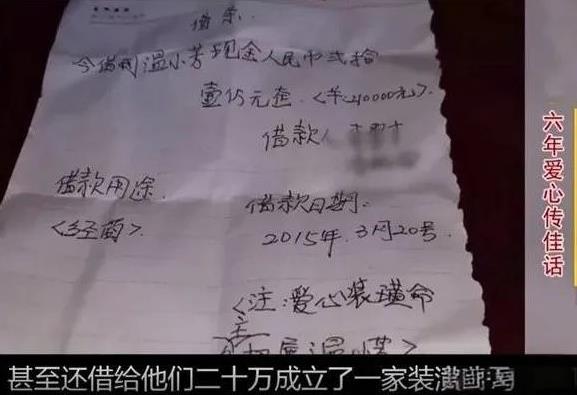 借条.
今借到温小芳现金人民币贰拾
壹仟元整.〈羊:210000元〉.
借款人
借款用途
〈经商〉.
借款日期.
2015年.3月20号
〈注:爱心装璜命
六年爱心传佳话
甚至还借给他们二十万成立了一家装潢